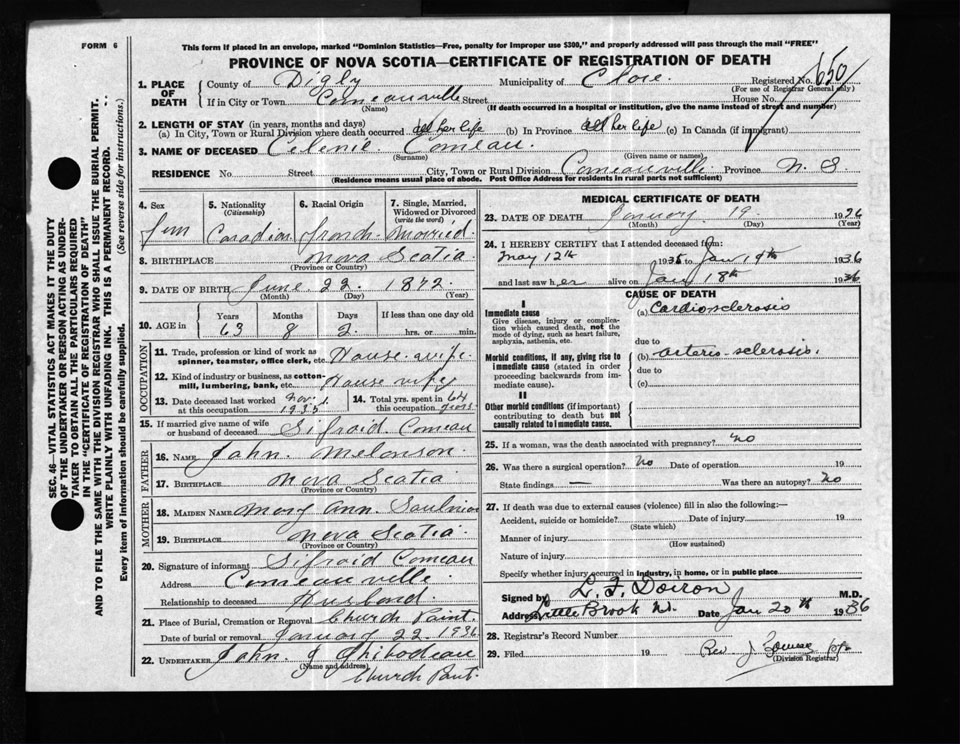 FORM 6
This form if placed in an envelope, marked "Dominion Statistics—Free, penalty for improper use $300," and properly addressed will pass through the mail "FREE"
PROVINCE OF NOVA SCOTIA—CERTIFICATE OF REGISTRATION OF DEATH
1. PLACE OF DEATH County of Digby Municipality of Clare. Registered No. 650
(For use of Registrar General only)
If in City or Town Comeauville Street House No.
(Name) (If death occurred in a hospital or institution, give the name instead of street and number)
2. LENGTH OF STAY (in years, months and days)
(a) In City, Town or Rural Division where death occurred all her life (b) In Province all her life (c) In Canada (if immigrant)
3. NAME OF DECEASED Celenie Comeau.
(Surname) (Given name or names)
RESIDENCE No. Street City, Town or Rural Division Comeauville Province N. S.
(Residence means usual place of abode. Post Office Address for residents in rural parts not sufficient)
4. Sex 5. Nationality (Citizenship) 6. Racial Origin 7. Single, Married, Widowed or Divorced (write the word)
Fem Canadian French Married.
8. BIRTHPLACE Nova Scotia.
(Province or Country)
9. DATE OF BIRTH June 22. 1872.
(Month) (Day) (Year)
10. AGE in Years Months Days If less than one day old
63 8 2. hrs. or min.
OCCUPATION
11. Trade, profession or kind of work as spinner, teamster, office clerk, etc. House-wife
12. Kind of industry or business, as cotton-mill, lumbering, bank, etc. House wify
13. Date deceased last worked at this occupation Nov. 1. 1935 14. Total yrs. spent in this occupation 64 years
15. If married give name of wife or husband of deceased Sifraid Comeau
FATHER
16. NAME John. Melonson.
17. BIRTHPLACE Nova Scotia
(Province or Country)
MOTHER
18. MAIDEN NAME Mary Ann. Saulnier
19. BIRTHPLACE Nova Scotia.
(Province or Country)
20. Signature of informant Sifraid Comeau
Address Comeauville.
Relationship to deceased Husband
21. Place of Burial, Cremation or Removal Church Point.
Date of burial or removal January 22. 1936
22. UNDERTAKER John. J Thibodeau
(Name and address) Church Point.
MEDICAL CERTIFICATE OF DEATH
23. DATE OF DEATH January 19. 1936
(Month) (Day) (Year)
24. I HEREBY CERTIFY that I attended deceased from:
May 12th 1935 to Jan 19th 1936
and last saw her alive on Jan 18th 1936
CAUSE OF DEATH
I
Immediate cause (a) Cardiosclerosis
Give disease, injury or complication which caused death, not the mode of dying, such as heart failure, asphyxia, asthenia, etc.
due to
Morbid conditions, if any, giving rise to immediate cause (stated in order proceeding backwards from immediate cause). (b) arterio-sclerosis.
due to
(c)
II
Other morbid conditions (if important) contributing to death but not causally related to immediate cause.
25. If a woman, was the death associated with pregnancy? no
26. Was there a surgical operation? No Date of operation 19
State findings — Was there an autopsy? No
27. If death was due to external causes (violence) fill in also the following:—
Accident, suicide or homicide? Date of injury 19
(State which)
Manner of injury
(How sustained)
Nature of injury
Specify whether injury occurred in industry, in home, or in public place
Signed by L. F. Doiron M.D.
Address Little Brook Date Jan 20th 1936
28. Registrar's Record Number
29. Filed 19 Rev J
(Division Registrar)
SEC. 46—VITAL STATISTICS ACT MAKES IT THE DUTY
OF THE UNDERTAKER OR PERSON ACTING AS UNDER-
TAKER TO OBTAIN ALL THE PARTICULARS REQUIRED
IN THE "CERTIFICATE OF REGISTRATION OF DEATH"
AND TO FILE THE SAME WITH THE DIVISION REGISTRAR WHO SHALL ISSUE THE BURIAL PERMIT.
WRITE PLAINLY WITH UNFADING INK. THIS IS A PERMANENT RECORD.
Every item of information should be carefully supplied. (See reverse side for instructions.)